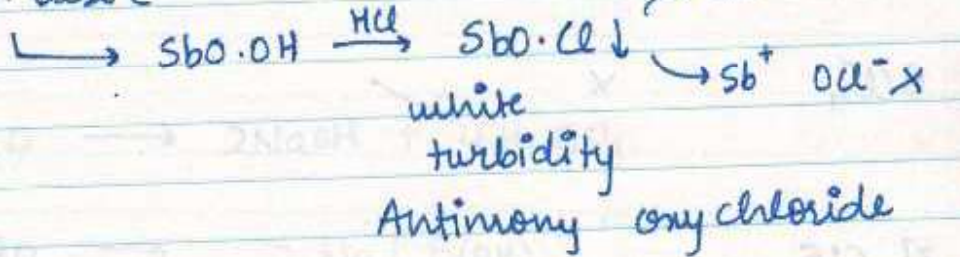 SbO.OH HCl→ SbO.Cl↓ → Sb⁺ OCl⁻ ✗
white
turbidity
Antimony oxychloride